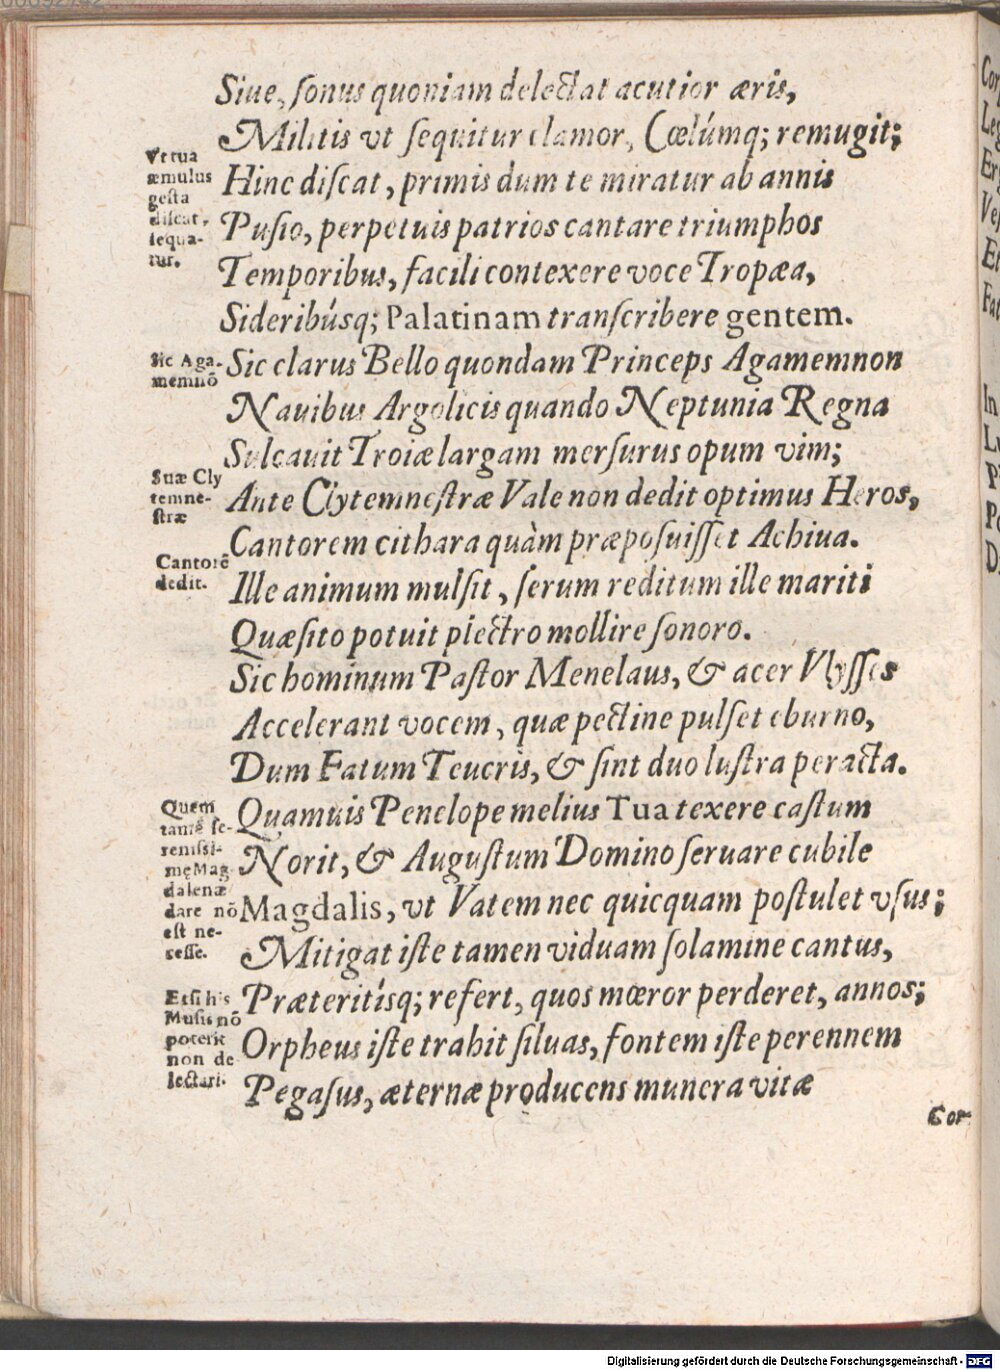 Siue, ſonus quoniam delectat acutior æris,
Militis vt ſequitur clamor, Cœlúmq; remugit;
Vt tua
æmulus
geſta
diſcat,
ſequa-
tur.
Hinc diſcat, primis dum te miratur ab annis
Puſio, perpetuis patrios cantare triumphos
Temporibus, facili contexere voce Tropæa,
Sideribúsq; Palatinam tranſcribere gentem.
Sic Aga-
memnõ
Sic clarus Bello quondam Princeps Agamemnon
Nauibus Argolicis quando Neptunia Regna
Sulcauit Troiæ largam merſurus opum vim;
Suæ Cly
temne-
ſtræ
Ante Clytemneſtræ Vale non dedit optimus Heros,
Cantorem cithara quàm præpoſuiſſet Achiua.
Cantorẽ
dedit.
Ille animum mulſit, ſerum reditum ille mariti
Quæſito potuit plectro mollire ſonoro.
Sic hominum Paſtor Menelaus, & acer Vlyſſes
Accelerant vocem, quæ pectine pulſet eburno,
Dum Fatum Teucris, & ſint duo luſtra peracta.
Quem
tamẽ ſe-
reniſsi-
mę Mag
dalenæ
dare nõ
eſt ne-
ceſſe.
Quamuis Penelope melius Tua texere caſtum
Norit, & Auguſtum Domino ſeruare cubile
Magdalis, vt Vatem nec quicquam poſtulet vſus;
Mitigat iſte tamen viduam ſolamine cantus,
Etſi his
Muſis nõ
poterit
non de
lectari.
Præteritísq; refert, quos mœror perderet, annos;
Orpheus iſte trahit ſiluas, fontem iſte perennem
Pegaſus, æternæ producens munera vitæ
Cor-
Digitalisierung gefördert durch die Deutsche Forschungsgemeinschaft - DFG